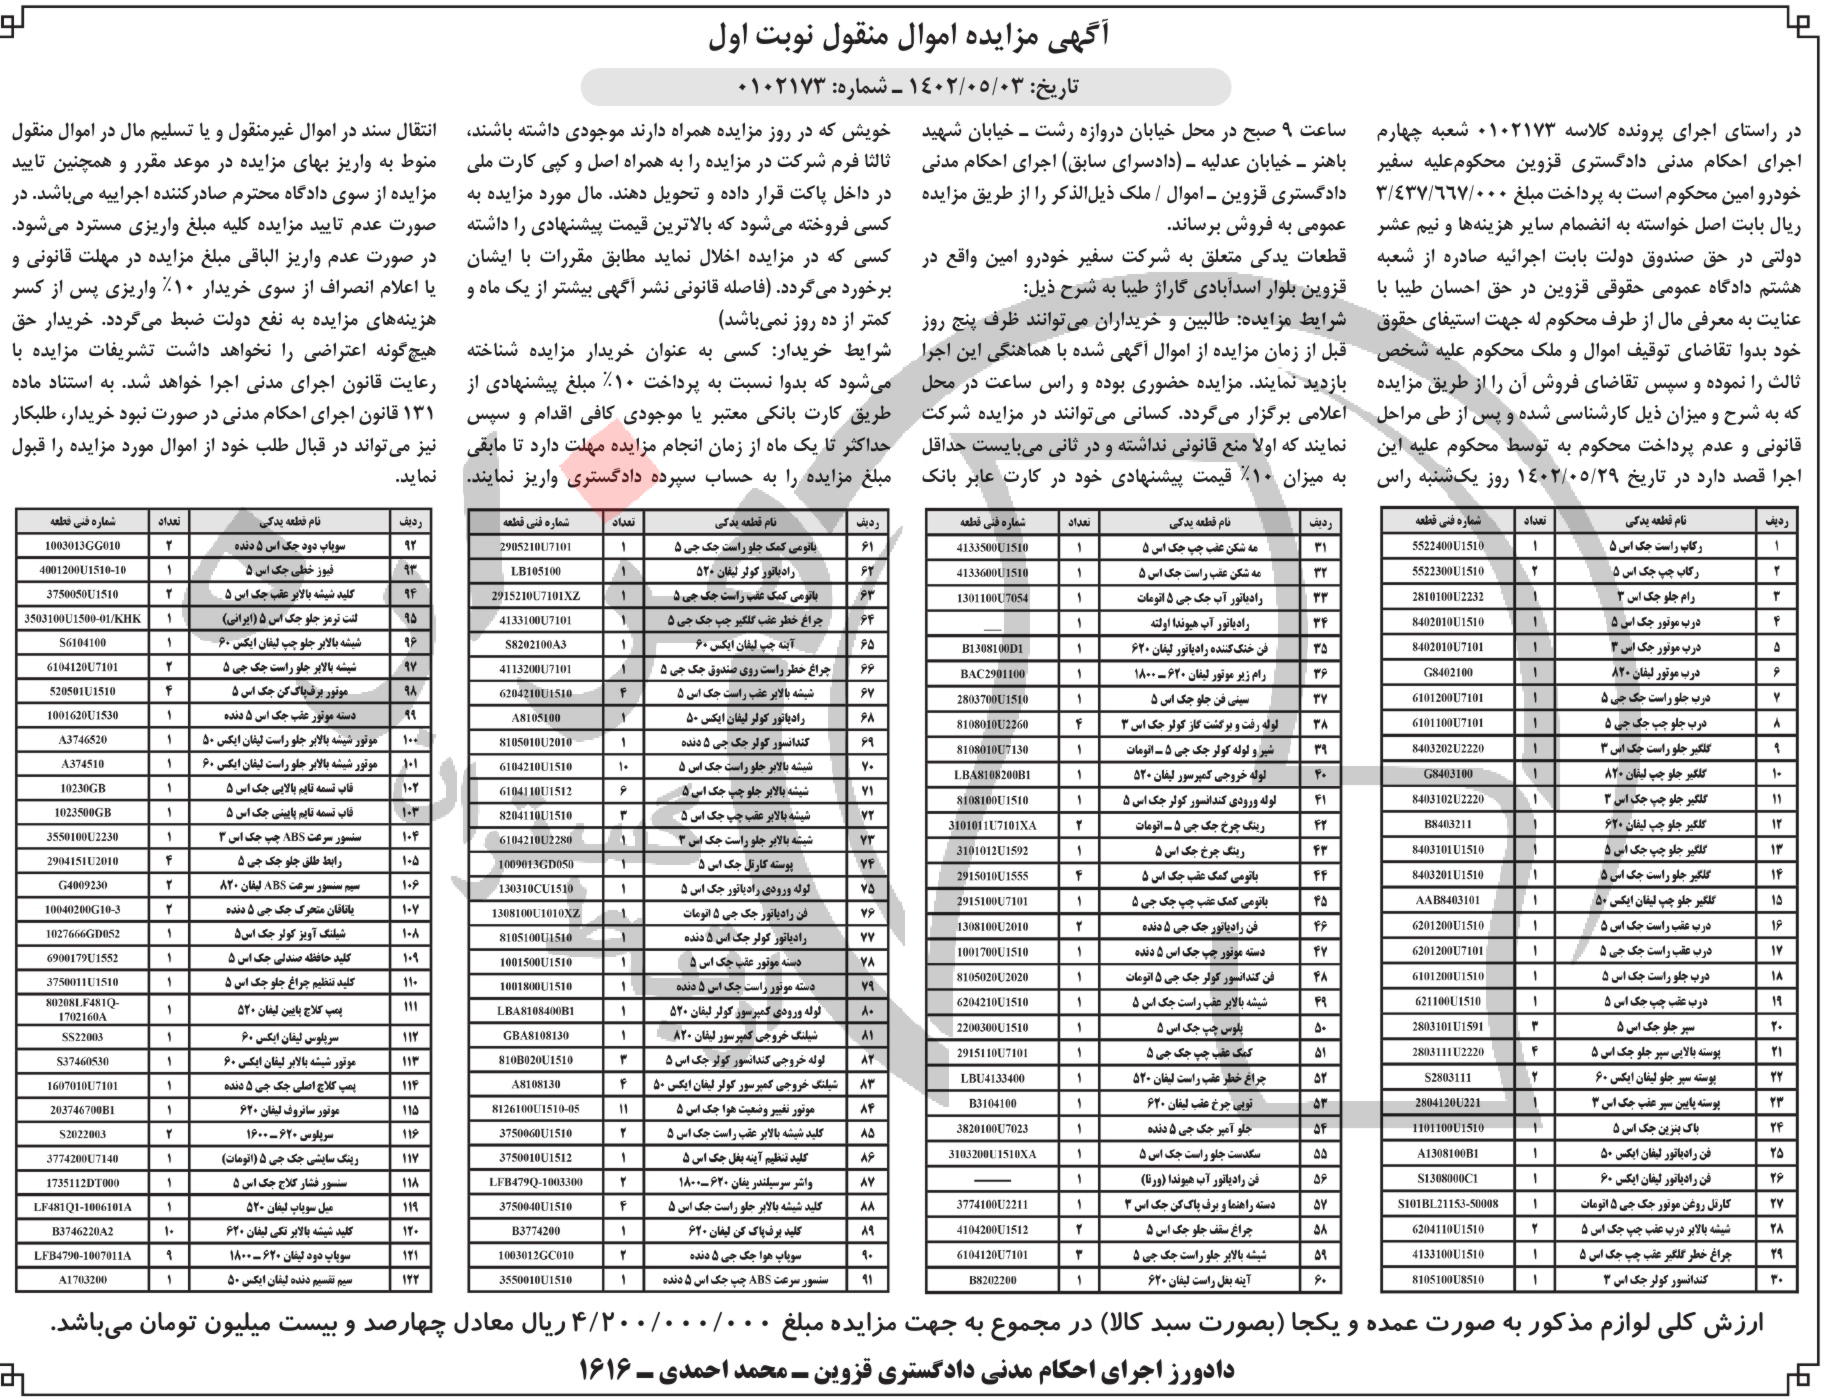 آگهی مزایده اموال منقول نوبت اول
تاریخ: ۱۴۰۲/۰۵/۰۳ ـ شماره: ۰۱۰۲۱۷۳
در راستای اجرای پرونده کلاسه ۰۱۰۲۱۷۳ شعبه چهارم
اجرای احکام مدنی دادگستری قزوین محکوم‌علیه سفیر
خودرو امین محکوم است به پرداخت مبلغ ۳/۴۳۷/۶۶۷/۰۰۰
ریال بابت اصل خواسته به انضمام سایر هزینه‌ها و نیم عشر
دولتی در حق صندوق دولت بابت اجرائیه صادره از شعبه
هشتم دادگاه عمومی حقوقی قزوین در حق احسان طیبا با
عنایت به معرفی مال از طرف محکوم له جهت استیفای حقوق
خود بدوا تقاضای توقیف اموال و ملک محکوم علیه شخص
ثالث را نموده و سپس تقاضای فروش آن را از طریق مزایده
که به شرح و میزان ذیل کارشناسی شده و پس از طی مراحل
قانونی و عدم پرداخت محکوم به توسط محکوم علیه این
اجرا قصد دارد در تاریخ ۱۴۰۲/۰۵/۲۹ روز یک‌شنبه راس
ساعت ۹ صبح در محل خیابان دروازه رشت ـ خیابان شهید
باهنر ـ خیابان عدلیه ـ (دادسرای سابق) اجرای احکام مدنی
دادگستری قزوین ـ اموال / ملک ذیل‌الذکر را از طریق مزایده
عمومی به فروش برساند.
قطعات یدکی متعلق به شرکت سفیر خودرو امین واقع در
قزوین بلوار اسدآبادی گاراژ طیبا به شرح ذیل:
شرایط مزایده: طالبین و خریداران می‌توانند ظرف پنج روز
قبل از زمان مزایده از اموال آگهی شده با هماهنگی این اجرا
بازدید نمایند. مزایده حضوری بوده و راس ساعت در محل
اعلامی برگزار می‌گردد. کسانی می‌توانند در مزایده شرکت
نمایند که اولا منع قانونی نداشته و در ثانی می‌بایست حداقل
به میزان ۱۰٪ قیمت پیشنهادی خود در کارت عابر بانک
خویش که در روز مزایده همراه دارند موجودی داشته باشند،
ثالثا فرم شرکت در مزایده را به همراه اصل و کپی کارت ملی
در داخل پاکت قرار داده و تحویل دهند. مال مورد مزایده به
کسی فروخته می‌شود که بالاترین قیمت پیشنهادی را داشته
کسی که در مزایده اخلال نماید مطابق مقررات با ایشان
برخورد می‌گردد. (فاصله قانونی نشر آگهی بیشتر از یک ماه و
کمتر از ده روز نمی‌باشد)
شرایط خریدار: کسی به عنوان خریدار مزایده شناخته
می‌شود که بدوا نسبت به پرداخت ۱۰٪ مبلغ پیشنهادی از
طریق کارت بانکی معتبر یا موجودی کافی اقدام و سپس
حداکثر تا یک ماه از زمان انجام مزایده مهلت دارد تا مابقی
مبلغ مزایده را به حساب سپرده دادگستری واریز نمایند.
انتقال سند در اموال غیرمنقول و یا تسلیم مال در اموال منقول
منوط به واریز بهای مزایده در موعد مقرر و همچنین تایید
مزایده از سوی دادگاه محترم صادرکننده اجراییه می‌باشد. در
صورت عدم تایید مزایده کلیه مبلغ واریزی مسترد می‌شود.
در صورت عدم واریز الباقی مبلغ مزایده در مهلت قانونی و
یا اعلام انصراف از سوی خریدار ۱۰٪ واریزی پس از کسر
هزینه‌های مزایده به نفع دولت ضبط می‌گردد. خریدار حق
هیچ‌گونه اعتراضی را نخواهد داشت تشریفات مزایده با
رعایت قانون اجرای مدنی اجرا خواهد شد. به استناد ماده
۱۳۱ قانون اجرای احکام مدنی در صورت نبود خریدار، طلبکار
نیز می‌تواند در قبال طلب خود از اموال مورد مزایده را قبول
نماید.
ردیف نام قطعه یدکی تعداد شماره فنی قطعه
۱ رکاب راست جک اس ۵ ۱ 5522400U1510
۲ رکاب چپ جک اس ۵ ۲ 5522300U1510
۳ رام جلو جک اس ۳ ۱ 2810100U2232
۴ درب موتور جک اس ۵ ۱ 8402010U1510
۵ درب موتور جک اس ۳ ۱ 8402010U7101
۶ درب موتور لیفان ۸۲۰ ۱ G8402100
۷ درب جلو راست جک جی ۵ ۱ 6101200U7101
۸ درب جلو چپ جک جی ۵ ۱ 6101100U7101
۹ گلگیر جلو راست جک اس ۳ ۱ 8403202U2220
۱۰ گلگیر جلو چپ لیفان ۸۲۰ ۱ G8403100
۱۱ گلگیر جلو چپ جک اس ۳ ۱ 8403102U2220
۱۲ گلگیر جلو چپ لیفان ۶۲۰ ۱ B8403211
۱۳ گلگیر جلو چپ جک اس ۵ ۱ 8403101U1510
۱۴ گلگیر جلو راست جک اس ۵ ۱ 8403201U1510
۱۵ گلگیر جلو چپ لیفان ایکس ۵۰ ۱ AAB8403101
۱۶ درب عقب راست جک اس ۵ ۱ 6201200U1510
۱۷ درب عقب راست جک جی ۵ ۱ 6201200U7101
۱۸ درب جلو راست جک اس ۵ ۱ 6101200U1510
۱۹ درب عقب چپ جک اس ۵ ۱ 621100U1510
۲۰ سپر جلو جک اس ۵ ۳ 2803101U1591
۲۱ پوسته بالایی سپر جلو جک اس ۵ ۴ 2803111U2220
۲۲ پوسته سپر جلو لیفان ایکس ۶۰ ۲ S2803111
۲۳ پوسته پایین سپر عقب جک اس ۳ ۱ 2804120U221
۲۴ باک بنزین جک اس ۵ ۱ 1101100U1510
۲۵ فن رادیاتور لیفان ایکس ۵۰ ۱ A1308100B1
۲۶ فن رادیاتور لیفان ایکس ۶۰ ۱ S1308000C1
۲۷ کارتل روغن موتور جک جی ۵ اتومات ۱ S101BL21153-50008
۲۸ شیشه بالابر درب عقب چپ جک اس ۵ ۲ 6204110U1510
۲۹ چراغ خطر گلگیر عقب چپ جک اس ۵ ۱ 4133100U1510
۳۰ کندانسور کولر جک اس ۳ ۱ 8105100U8510
ردیف نام قطعه یدکی تعداد شماره فنی قطعه
۳۱ مه شکن عقب چپ جک اس ۵ ۱ 4133500U1510
۳۲ مه شکن عقب راست جک اس ۵ ۱ 4133600U1510
۳۳ رادیاتور آب جک جی ۵ اتومات ۱ 1301100U7054
۳۴ رادیاتور آب هیوندا اولته ۱ __
۳۵ فن خنک‌کننده رادیاتور لیفان ۶۲۰ ۱ B1308100D1
۳۶ رام زیر موتور لیفان ۶۲۰ ـ ۱۸۰۰ ۱ BAC2901100
۳۷ سینی فن جلو جک اس ۵ ۱ 2803700U1510
۳۸ لوله رفت و برگشت گاز کولر جک اس ۳ ۴ 8108010U2260
۳۹ شیر و لوله کولر جک جی ۵ ـ اتومات ۱ 8108010U7130
۴۰ لوله خروجی کمپرسور لیفان ۵۲۰ ۱ LBA8108200B1
۴۱ لوله ورودی کندانسور کولر جک اس ۵ ۱ 8108100U1510
۴۲ رینگ چرخ جک جی ۵ ـ اتومات ۲ 3101011U7101XA
۴۳ رینگ چرخ جک اس ۵ ۱ 3101012U1592
۴۴ باتومی کمک عقب جک اس ۵ ۴ 2915010U1555
۴۵ باتومی کمک عقب چپ جک جی ۵ ۱ 2915100U7101
۴۶ فن رادیاتور جک جی ۵ دنده ۲ 1308100U2010
۴۷ دسته موتور چپ جک اس ۵ دنده ۱ 1001700U1510
۴۸ فن کندانسور کولر جک جی ۵ اتومات ۱ 8105020U2020
۴۹ شیشه بالابر عقب راست جک اس ۵ ۱ 6204210U1510
۵۰ پلوس چپ جک اس ۵ ۱ 2200300U1510
۵۱ کمک عقب چپ جک جی ۵ ۱ 2915110U7101
۵۲ چراغ خطر عقب راست لیفان ۵۲۰ ۱ LBU4133400
۵۳ توپی چرخ عقب لیفان ۶۲۰ ۱ B3104100
۵۴ جلو آمپر جک جی ۵ دنده ۱ 3820100U7023
۵۵ سگدست جلو راست جک اس ۵ ۱ 3103200U1510XA
۵۶ فن رادیاتور آب هیوندا (ورنا) ۱ ____
۵۷ دسته راهنما و برف پاک‌کن جک اس ۳ ۱ 3774100U2211
۵۸ چراغ سقف جلو جک اس ۵ ۲ 4104200U1512
۵۹ شیشه بالابر جلو راست جک جی ۵ ۳ 6104120U7101
۶۰ آینه بغل راست لیفان ۶۲۰ ۱ B8202200
ردیف نام قطعه یدکی تعداد شماره فنی قطعه
۶۱ باتومی کمک جلو راست جک جی ۵ ۱ 2905210U7101
۶۲ رادیاتور کولر لیفان ۵۲۰ ۱ LB105100
۶۳ باتومی کمک عقب راست جک جی ۵ ۱ 2915210U7101XZ
۶۴ چراغ خطر عقب گلگیر چپ جک جی ۵ ۱ 4133100U7101
۶۵ آینه چپ لیفان ایکس ۶۰ ۱ S8202100A3
۶۶ چراغ خطر راست روی صندوق جک جی ۵ ۱ 4113200U7101
۶۷ شیشه بالابر عقب راست جک اس ۵ ۴ 6204210U1510
۶۸ رادیاتور کولر لیفان ایکس ۵۰ ۱ A8105100
۶۹ کندانسور کولر جک جی ۵ دنده ۱ 8105010U2010
۷۰ شیشه بالابر جلو راست جک اس ۵ ۱۰ 6104210U1510
۷۱ شیشه بالابر جلو چپ جک اس ۵ ۶ 6104110U1512
۷۲ شیشه بالابر عقب چپ جک اس ۵ ۳ 8204110U1510
۷۳ شیشه بالابر جلو راست جک اس ۳ ۱ 6104210U2280
۷۴ پوسته کارتل جک اس ۵ ۱ 1009013GD050
۷۵ لوله ورودی رادیاتور جک اس ۵ ۱ 130310CU1510
۷۶ فن رادیاتور جک جی ۵ اتومات ۱ 1308100U1010XZ
۷۷ رادیاتور کولر جک اس ۵ دنده ۱ 8105100U1510
۷۸ دسته موتور عقب جک اس ۵ ۱ 1001500U1510
۷۹ دسته موتور راست جک اس ۵ دنده ۱ 1001800U1510
۸۰ لوله ورودی کمپرسور کولر لیفان ۵۲۰ ۱ LBA8108400B1
۸۱ شیلنگ خروجی کمپرسور لیفان ۸۲۰ ۱ GBA8108130
۸۲ لوله خروجی کندانسور کولر جک اس ۵ ۳ 810B020U1510
۸۳ شیلنگ خروجی کمپرسور کولر لیفان ایکس ۵۰ ۴ A8108130
۸۴ موتور تغییر وضعیت هوا جک اس ۵ ۱۱ 8126100U1510-05
۸۵ کلید شیشه بالابر عقب راست جک اس ۵ ۲ 3750060U1510
۸۶ کلید تنظیم آینه بغل جک اس ۵ ۱ 3750010U1512
۸۷ واشر سرسیلندر یفان ۶۲۰ ـ ۱۸۰۰ ۲ LFB479Q-1003300
۸۸ کلید شیشه بالابر جلو راست جک اس ۵ ۴ 3750040U1510
۸۹ کلید برف‌پاک کن لیفان ۶۲۰ ۱ B3774200
۹۰ سوپاپ هوا جک جی ۵ دنده ۲ 1003012GC010
۹۱ سنسور سرعت ABS چپ جک اس ۵ دنده ۱ 3550010U1510
ردیف نام قطعه یدکی تعداد شماره فنی قطعه
۹۲ سوپاپ دود جک اس ۵ دنده ۲ 1003013GG010
۹۳ فیوز خطی جک اس ۵ ۱ 4001200U1510-10
۹۴ کلید شیشه بالابر عقب جک اس ۵ ۲ 3750050U1510
۹۵ لنت ترمز جلو جک اس ۵ (ایرانی) ۱ 3503100U1500-01/KHK
۹۶ شیشه بالابر جلو چپ لیفان ایکس ۶۰ ۱ S6104100
۹۷ شیشه بالابر جلو راست جک جی ۵ ۲ 6104120U7101
۹۸ موتور برف‌پاک‌کن جک اس ۵ ۴ 520501U1510
۹۹ دسته موتور عقب جک اس ۵ دنده ۱ 1001620U1530
۱۰۰ موتور شیشه بالابر جلو راست لیفان ایکس ۵۰ ۱ A3746520
۱۰۱ موتور شیشه بالابر جلو راست لیفان ایکس ۶۰ ۱ A374510
۱۰۲ قاب تسمه تایم بالایی جک اس ۵ ۱ 10230GB
۱۰۳ قاب تسمه تایم پایینی جک اس ۵ ۱ 1023500GB
۱۰۴ سنسور سرعت ABS چپ جک اس ۳ ۱ 3550100U2230
۱۰۵ رابط طلق جلو جک جی ۵ ۴ 2904151U2010
۱۰۶ سیم سنسور سرعت ABS لیفان ۸۲۰ ۲ G4009230
۱۰۷ یاتاقان متحرک جک جی ۵ دنده ۲ 10040200G10-3
۱۰۸ شیلنگ آویز کولر جک اس۵ ۱ 1027666GD052
۱۰۹ کلید حافظه صندلی جک اس ۵ ۱ 6900179U1552
۱۱۰ کلید تنظیم چراغ جلو جک اس ۵ ۱ 3750011U1510
۱۱۱ پمپ کلاچ پایین لیفان ۵۲۰ ۱ 80208LF481Q-1702160A
۱۱۲ سرپلوس لیفان ایکس ۶۰ ۱ SS22003
۱۱۳ موتور شیشه بالابر لیفان ایکس ۶۰ ۱ S37460530
۱۱۴ پمپ کلاچ اصلی جک جی ۵ دنده ۱ 1607010U7101
۱۱۵ موتور سانروف لیفان ۶۲۰ ۱ 203746700B1
۱۱۶ سرپلوس ۶۲۰ ـ ۱۶۰۰ ۲ S2022003
۱۱۷ رینگ سایشی جک جی ۵ (اتومات) ۱ 3774200U7140
۱۱۸ سنسور فشار کلاچ جک اس ۵ ۱ 1735112DT000
۱۱۹ میل سوپاپ لیفان ۵۲۰ ۱ LF481Q1-1006101A
۱۲۰ کلید شیشه بالابر تکی لیفان ۶۲۰ ۱۰ B3746220A2
۱۲۱ سوپاپ دود لیفان ۶۲۰ ـ ۱۸۰۰ ۹ LFB4790-1007011A
۱۲۲ سیم تقسیم دنده لیفان ایکس ۵۰ ۱ A1703200
ارزش کلی لوازم مذکور به صورت عمده و یکجا (بصورت سبد کالا) در مجموع به جهت مزایده مبلغ ۴/۲۰۰/۰۰۰/۰۰۰ ریال معادل چهارصد و بیست میلیون تومان می‌باشد.
دادورز اجرای احکام مدنی دادگستری قزوین ـ محمد احمدی ـ ۱۶۱۶